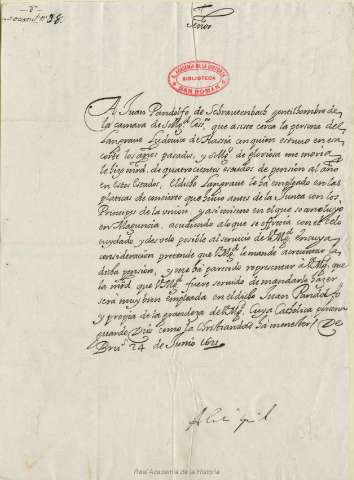 Señor
R. ACADEMIA DE LA HISTORIA
BIBLIOTECA
SAN ROMAN
A Juan Pandolfo de Schrautenbach gentilhombre de
la camara de S Mgd. Ces.ª que asiste cerca la persona del
Langrave Ludovico de Hassia con quien estuvo en esa
corte los años pasados, y S Mgd. de gloriosa memoria
le hizo mrd. de quatrocientos escudos de pensión al año
en estos estados, El dicho Langrave le ha empleado en las
platicas de concierto que hubo antes de la Junta con los
Principes de la union, y asi mismo en el que se concluyo
en Maguncia, acudiendo a lo que se ofrecia con el zelo
cuydado, y desvelo posible al servicio de V Mgd. En cuya
consideracion pretende que V Mgd. le mande acrecentar la
dicha pensión, y me ha parecido representar à V Mgd. que
la mrd. que V Mgd. fuere servido de mandarle hazer
sera muy bien empleada en el dicho Juan Pandolfo
y propia de la grandeza de V Mgd. Cuya Catholica persona
guarde Dios como la Christiandad ha menester. De
Bru.s 24 de Junio 1621
Real Academia de la Historia